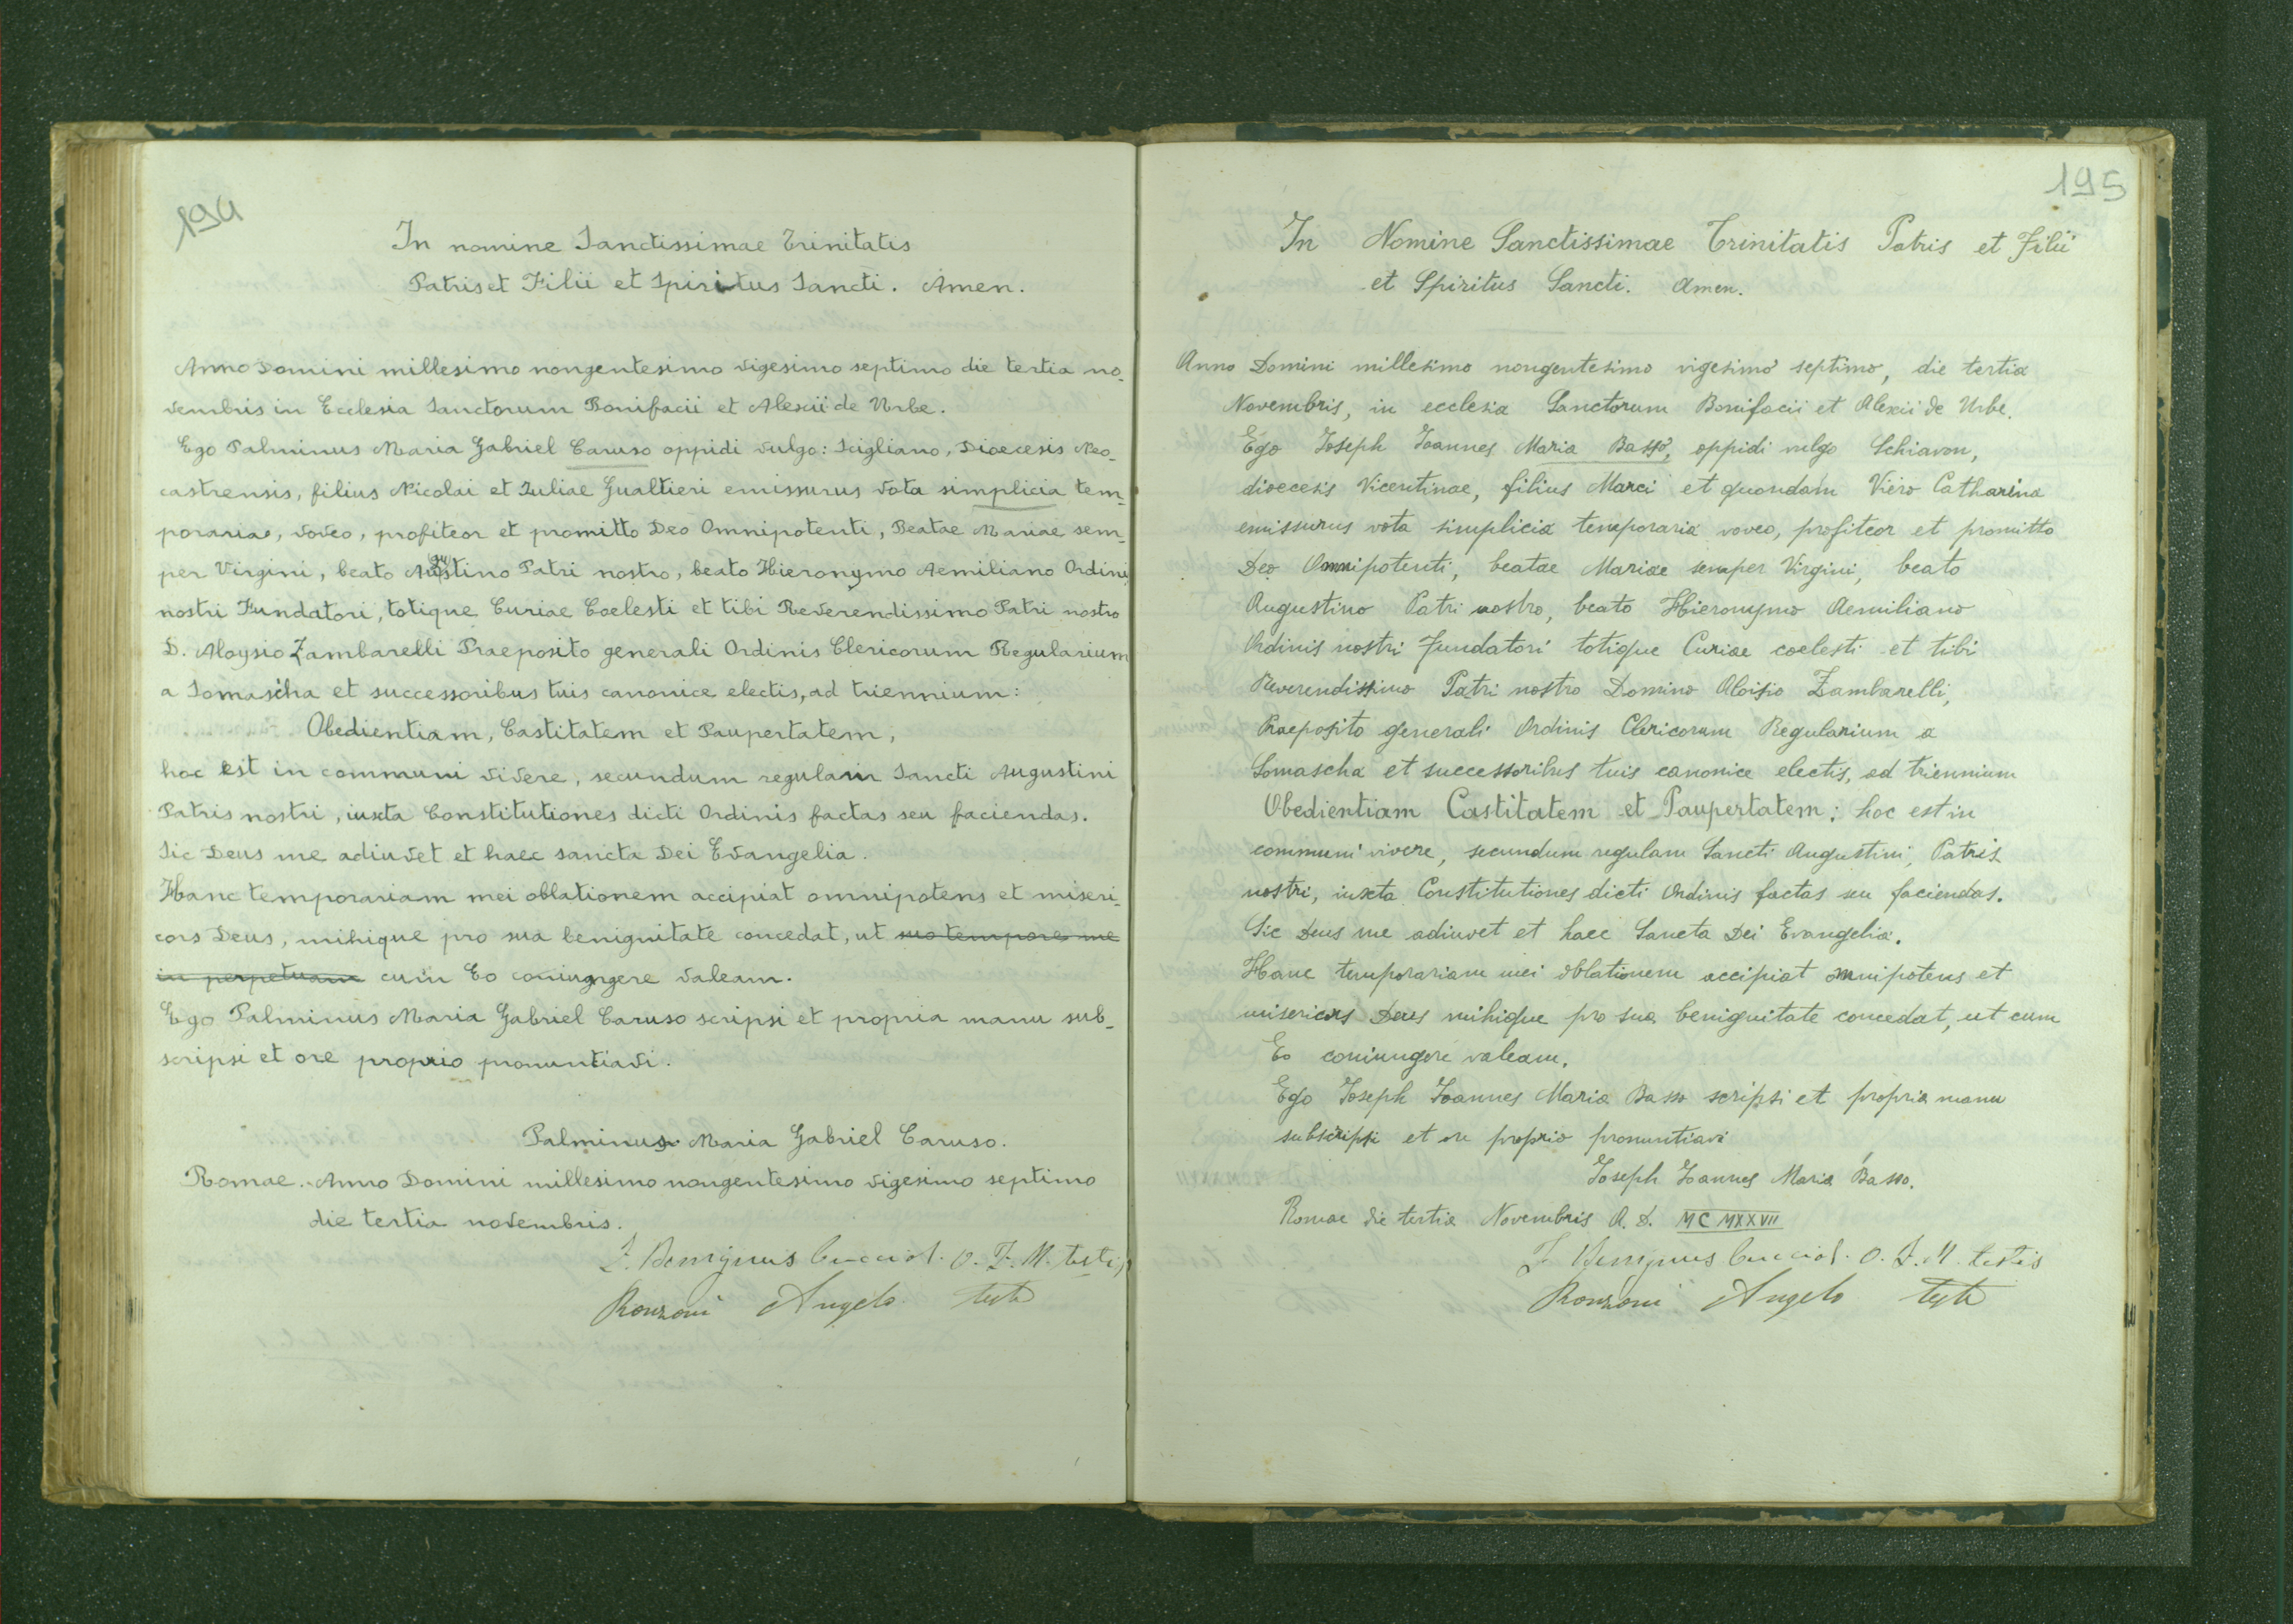 194
In nomine Sanctissimae Trinitatis
Patris et Filii et Spiritus Sancti. Amen.
Anno Domini millesimo nongentesimo vigesimo septimo die tertia no-
vembris in Ecclesia Sanctorum Bonifacii et Alexii de Urbe.
Ego Palminus Maria Gabriel Caruso oppidi vulgo: Scigliano, Dioecesis Neo-
castrensis, filius Nicolai et Iuliae Gualtieri emissurus vota simplicia tem-
poraria, voveo, profiteor et promitto Deo Omnipotenti, Beatae Mariae sem-
per Virgini, beato Augustino Patri nostro, beato Hieronymo Aemiliano Ordini
nostri Fundatori, totique Curiae Coelesti et tibi Reverendissimo Patri nostro
D. Aloysio Zambarelli Praeposito generali Ordinis Clericorum Regularium
a Somascha et successoribus tuis canonice electis, ad triennium:
Obedientiam, Castitatem et Paupertatem,
hoc est in communi vivere, secundum regulam Sancti Augustini
Patris nostri, iuxta Constitutiones dicti Ordinis factas seu faciendas.
Sic Deus me adiuvet et haec sancta Dei Evangelia.
Hanc temporariam mei oblationem accipiat omnipotens et miseri-
cors Deus, mihique pro sua benignitate concedat, ut suo tempore me
in perpetuam cum Eo coniungere valeam.
Ego Palminus Maria Gabriel Caruso scripsi et propria manu sub-
scripsi et ore proprio pronuntiavi.
Palminus Maria Gabriel Caruso.
Romae. Anno Domini millesimo nongentesimo vigesimo septimo
die tertia novembris.
F. Benignus O. F. M. testis
Ronzoni Angelo teste
195
In Nomine Sanctissimae Trinitatis Patris et Filii
et Spiritus Sancti. Amen.
Anno Domini millesimo nongentesimo vigesimo septimo, die tertia
Novembris, in ecclesia Sanctorum Bonifacii et Alexii de Urbe.
Ego Ioseph Ioannes Maria Basso, oppidi vulgo Schiavon,
dioecesis Vicentinae, filius Marci et quondam Viero Catharina
emissurus vota simplicia temporaria voveo, profiteor et promitto
Deo Omnipotenti, beatae Mariae semper Virgini, beato
Augustino Patri nostro, beato Hieronymo Aemiliano
Ordinis nostri fundatori totique Curiae coelesti et tibi
Reverendissimo Patri nostro Domino Aloisio Zambarelli,
Praeposito generali Ordinis Clericorum Regularium a
Somascha et successoribus tuis canonice electis, ad triennium
Obedientiam Castitatem et Paupertatem; hoc est in
communi vivere, secundum regulam Sancti Augustini, Patris
nostri, iuxta Constitutiones dicti Ordinis factas seu faciendas.
Sic Deus me adiuvet et haec Sancta Dei Evangelia.
Hanc temporariam mei oblationem accipiat omnipotens et
misericors Deus mihique pro sua benignitate concedat, ut cum
Eo coniungere valeam.
Ego Ioseph Ioannes Maria Basso scripsi et propria manu
subscripsi et ore proprio pronuntiavi
Ioseph Ioannes Maria Basso.
Romae die tertia Novembris A. D. MCMXXVII
F. Benignus O. F. M. testis
Ronzoni Angelo teste